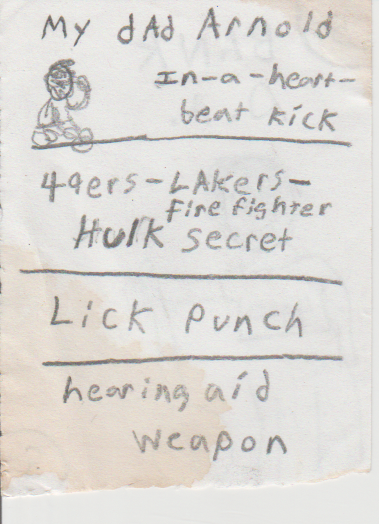 My dAd Arnold
In-a-heart-
beat kick
49ers-LAkers-
fire fighter
Hulk secret
Lick Punch
hearing aid
weapon